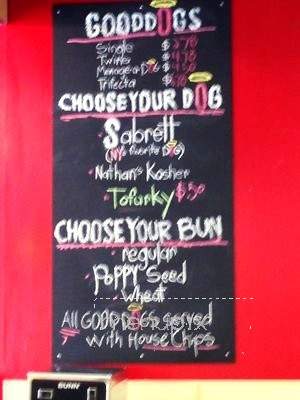 GOODDOGS
Single $
Twins $
Menage a DOG $
Trifecta $
CHOOSE YOUR DOG
Sabrett
(NYs favorite DOG)
Nathan's Kosher
Tofurky $.50
CHOOSE YOUR BUN
regular
POPPY Seed
wheat
All GOODDOGS served
with House Chips
BUNN